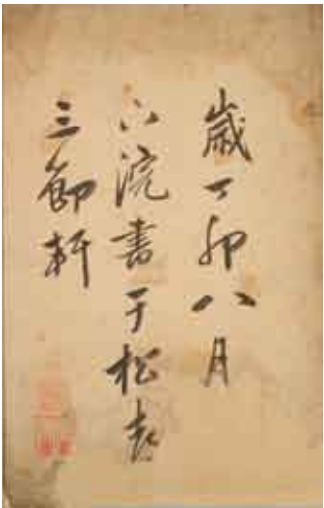 歲丁卯八月
下浣書于松
三節軒